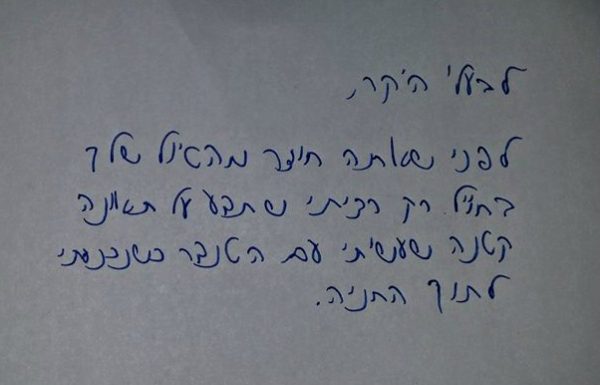 לבעלי היקר,
לפני שאתה חוזר מהטיול שלך
בחו״ל רק רציתי שתדע על תאונה
קטנה שעשיתי עם הטנדר כשנכנסתי
לתוך החניה.